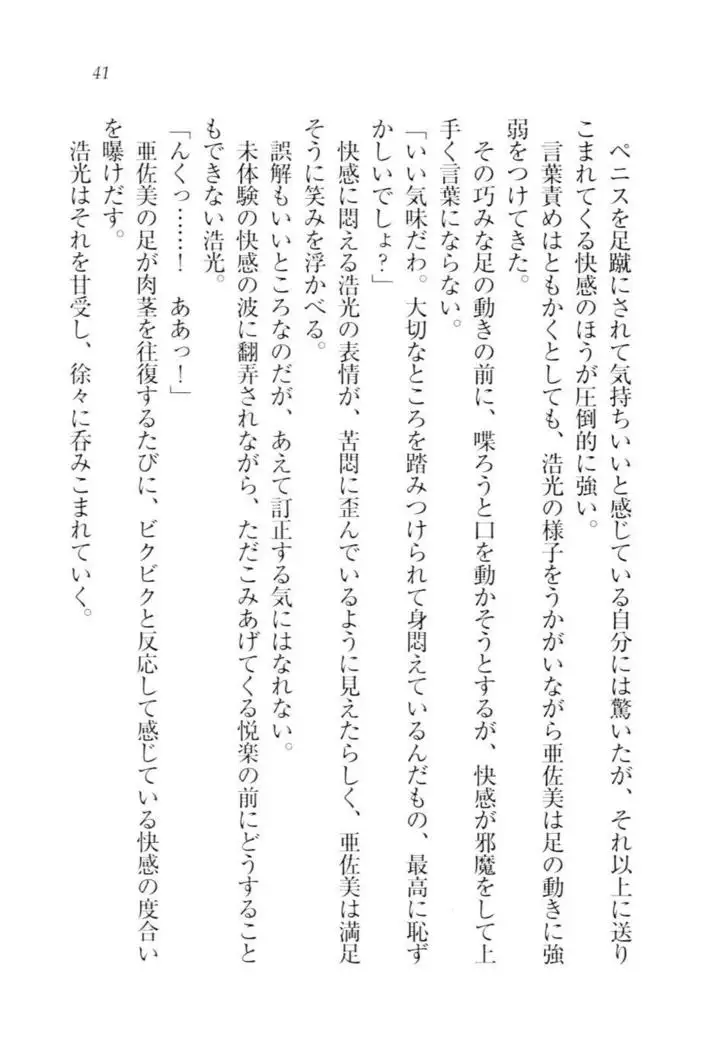 41
ペニスを足蹴にされて気持ちいいと感じている自分には驚いたが、それ以上に送り
こまれてくる快感のほうが圧倒的に強い。
言葉責めはともかくとしても、浩光の様子をうかがいながら亜佐美は足の動きに強
弱をつけてきた。
その巧みな足の動きの前に、喋ろうと口を動かそうとするが、快感が邪魔をして上
手く言葉にならない。
「いい気味だわ。大切なところを踏みつけられて身悶えているんだもの、最高に恥ず
かしいでしょ？」
快感に悶える浩光の表情が、苦悶に歪んでいるように見えたらしく、亜佐美は満足
そうに笑みを浮かべる。
誤解もいいところなのだが、あえて訂正する気にはなれない。
未体験の快感の波に翻弄されながら、ただこみあげてくる悦楽の前にどうすること
もできない浩光。
「んくっ……！　ああっ！」
亜佐美の足が肉茎を往復するたびに、ビクビクと反応して感じている快感の度合い
を曝けだす。
浩光はそれを甘受し、徐々に呑みこまれていく。